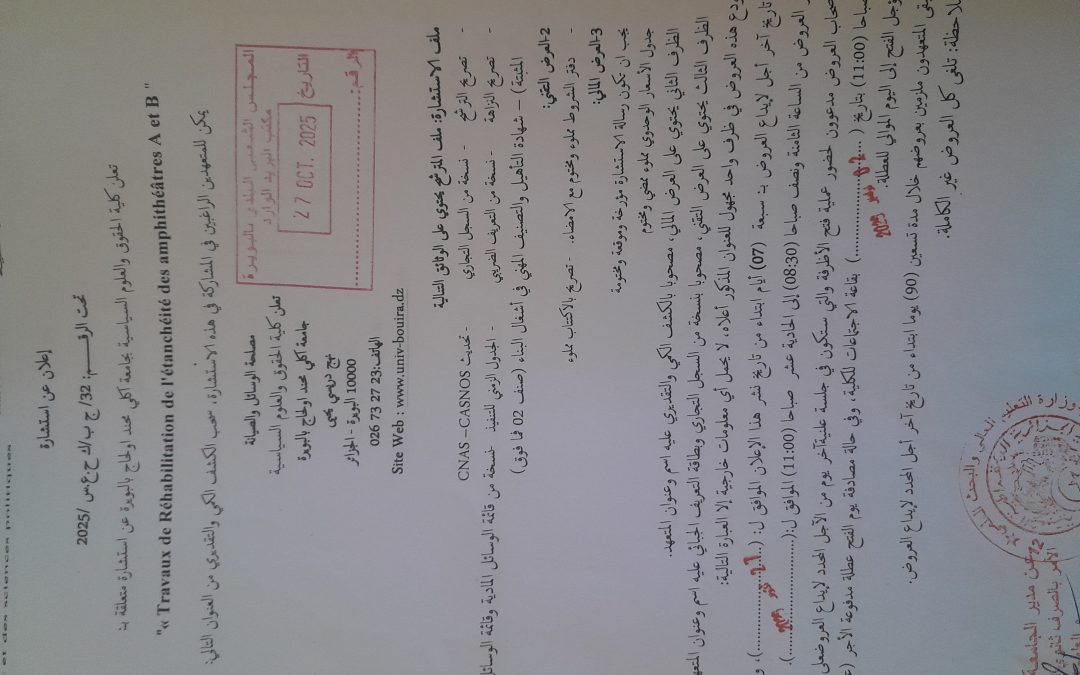 et des sciences politiques
إعلان عن استشارة
تحت الرقـــــم: 32/ ج ب/ك ح ع.س /2025
تعلن كلية الحقوق والعلوم السياسية بجامعة آكلي محند اولحاج بالبويرة عن استشارة متعلقة بـ
"« Travaux de Réhabilitation de l'étanchéité des amphithéâtres A et B "
يمكن للمتعهدين الراغبين في المشاركة في هذه الاستشارة، سحب الكشف الكمي والتقديري من العنوان التالي:
المجلس الشعبي البلدي بالبويرة
مكتب البريد الوارد
التاريخ
27 OCT. 2025
الرقم:
مصلحة الوسائل والصيانة
تعلن كلية الحقوق والعلوم السياسية
جامعة آكلي محند اولحاج بالبويرة
نهج دريسي يحيى
10000 البويرة - الجزائر
الهاتف: 23 27 73 026
Site Web : www.univ-bouira.dz
ملف الاستشارة: ملف الترشح يحتوي على الوثائق التالية
- تصريح الترشح - نسخة من السجل التجاري - تحديث CNAS –CASNOS
- تصريح النزاهة - نسخة من التعريف الضريبي - الجدول الزمني للتنفيذ نسخة من قائمة الوسائل المادية وقائمة الوسائل
المثبتة) – شهادة التأهيل والتصنيف المهني في أشغال البناء (صنف 02 فما فوق)
2-العرض التقني:
- دفتر الشروط مملوء ومختوم مع الامضاء. - تصريح بالاكتتاب مملوء
3-العرض المالي:
يجب ان تكون رسالة الاستشارة مؤرخة وموقعة ومختومة
جدول الأسعار الوحدوي مملوء ممضي ومختوم
الظرف الثاني يحتوي على العرض المالي، مصحوبا بالكشف الكمي والتقديري عليه اسم وعنوان المتعهد.
الظرف الثالث يحتوي على العرض التقني، مصحوبا بنسخة من السجل التجاري وبطاقة التعريف الجبائي عليه اسم وعنوان المتعهد
هذه العروض في ظرف واحد مجهول العنوان المذكور أعلاه، لا يحمل أي معلومات خارجية إلا العبارة التالية:
تاريخ آخر أجل لإيداع العروض بـ سبعة (07) أيام ابتداء من تاريخ نشر هذا الإعلان الموافق ل: (
العروض من الساعة الثامنة ونصف صباحا (08:30) إلى الحادية عشر صباحا (11:00) الموافق ل:(
أصحاب العروض مدعوون لحضور عملية فتح الأظرفة والتي ستكون في جلسة علنية آخر يوم من الآجل المحدد لإيداع العروض
صباحا (11:00) بتاريخ ( ) بقاعة الاجتماعات للكلية، وفي حالة مصادفة يوم الفتح عطلة مدفوعة الأجر
يؤجل الفتح إلى اليوم الموالي للعطلة.
يبقى المتعهدون ملزمين بعروضهم خلال مدة تسعين (90) يوما ابتداء من تاريخ آخر أجل المحدد لإيداع العروض.
ملاحظة: تلغى كل العروض غير الكاملة.
عن مدير الجامعة
الآمر بالصرف ثانوي